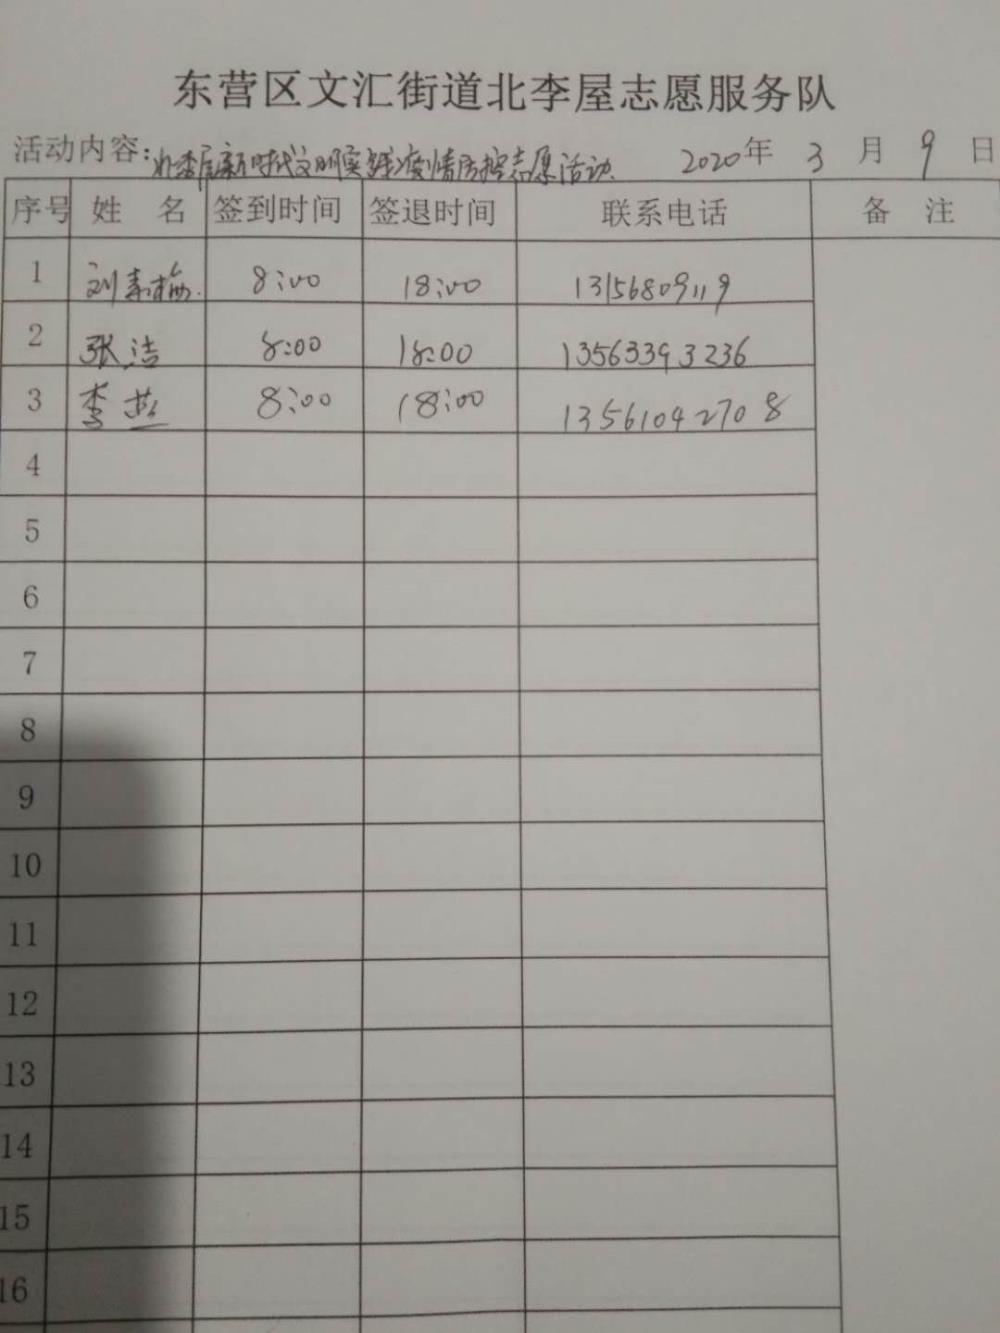 东营区文汇街道北李屋志愿服务队
活动内容:北李屋新时代文明实践疫情防控志愿活动. 2020年 3 月 9 日
序号 姓 名 签到时间 签退时间 联系电话 备 注
1 刘素梅. 8:00 18:00 13156809119
2 张洁 8:00 18:00 13563393236
3 李燕 8:00 18:00 13561042708
4
5
6
7
8
9
10
11
12
13
14
15
16